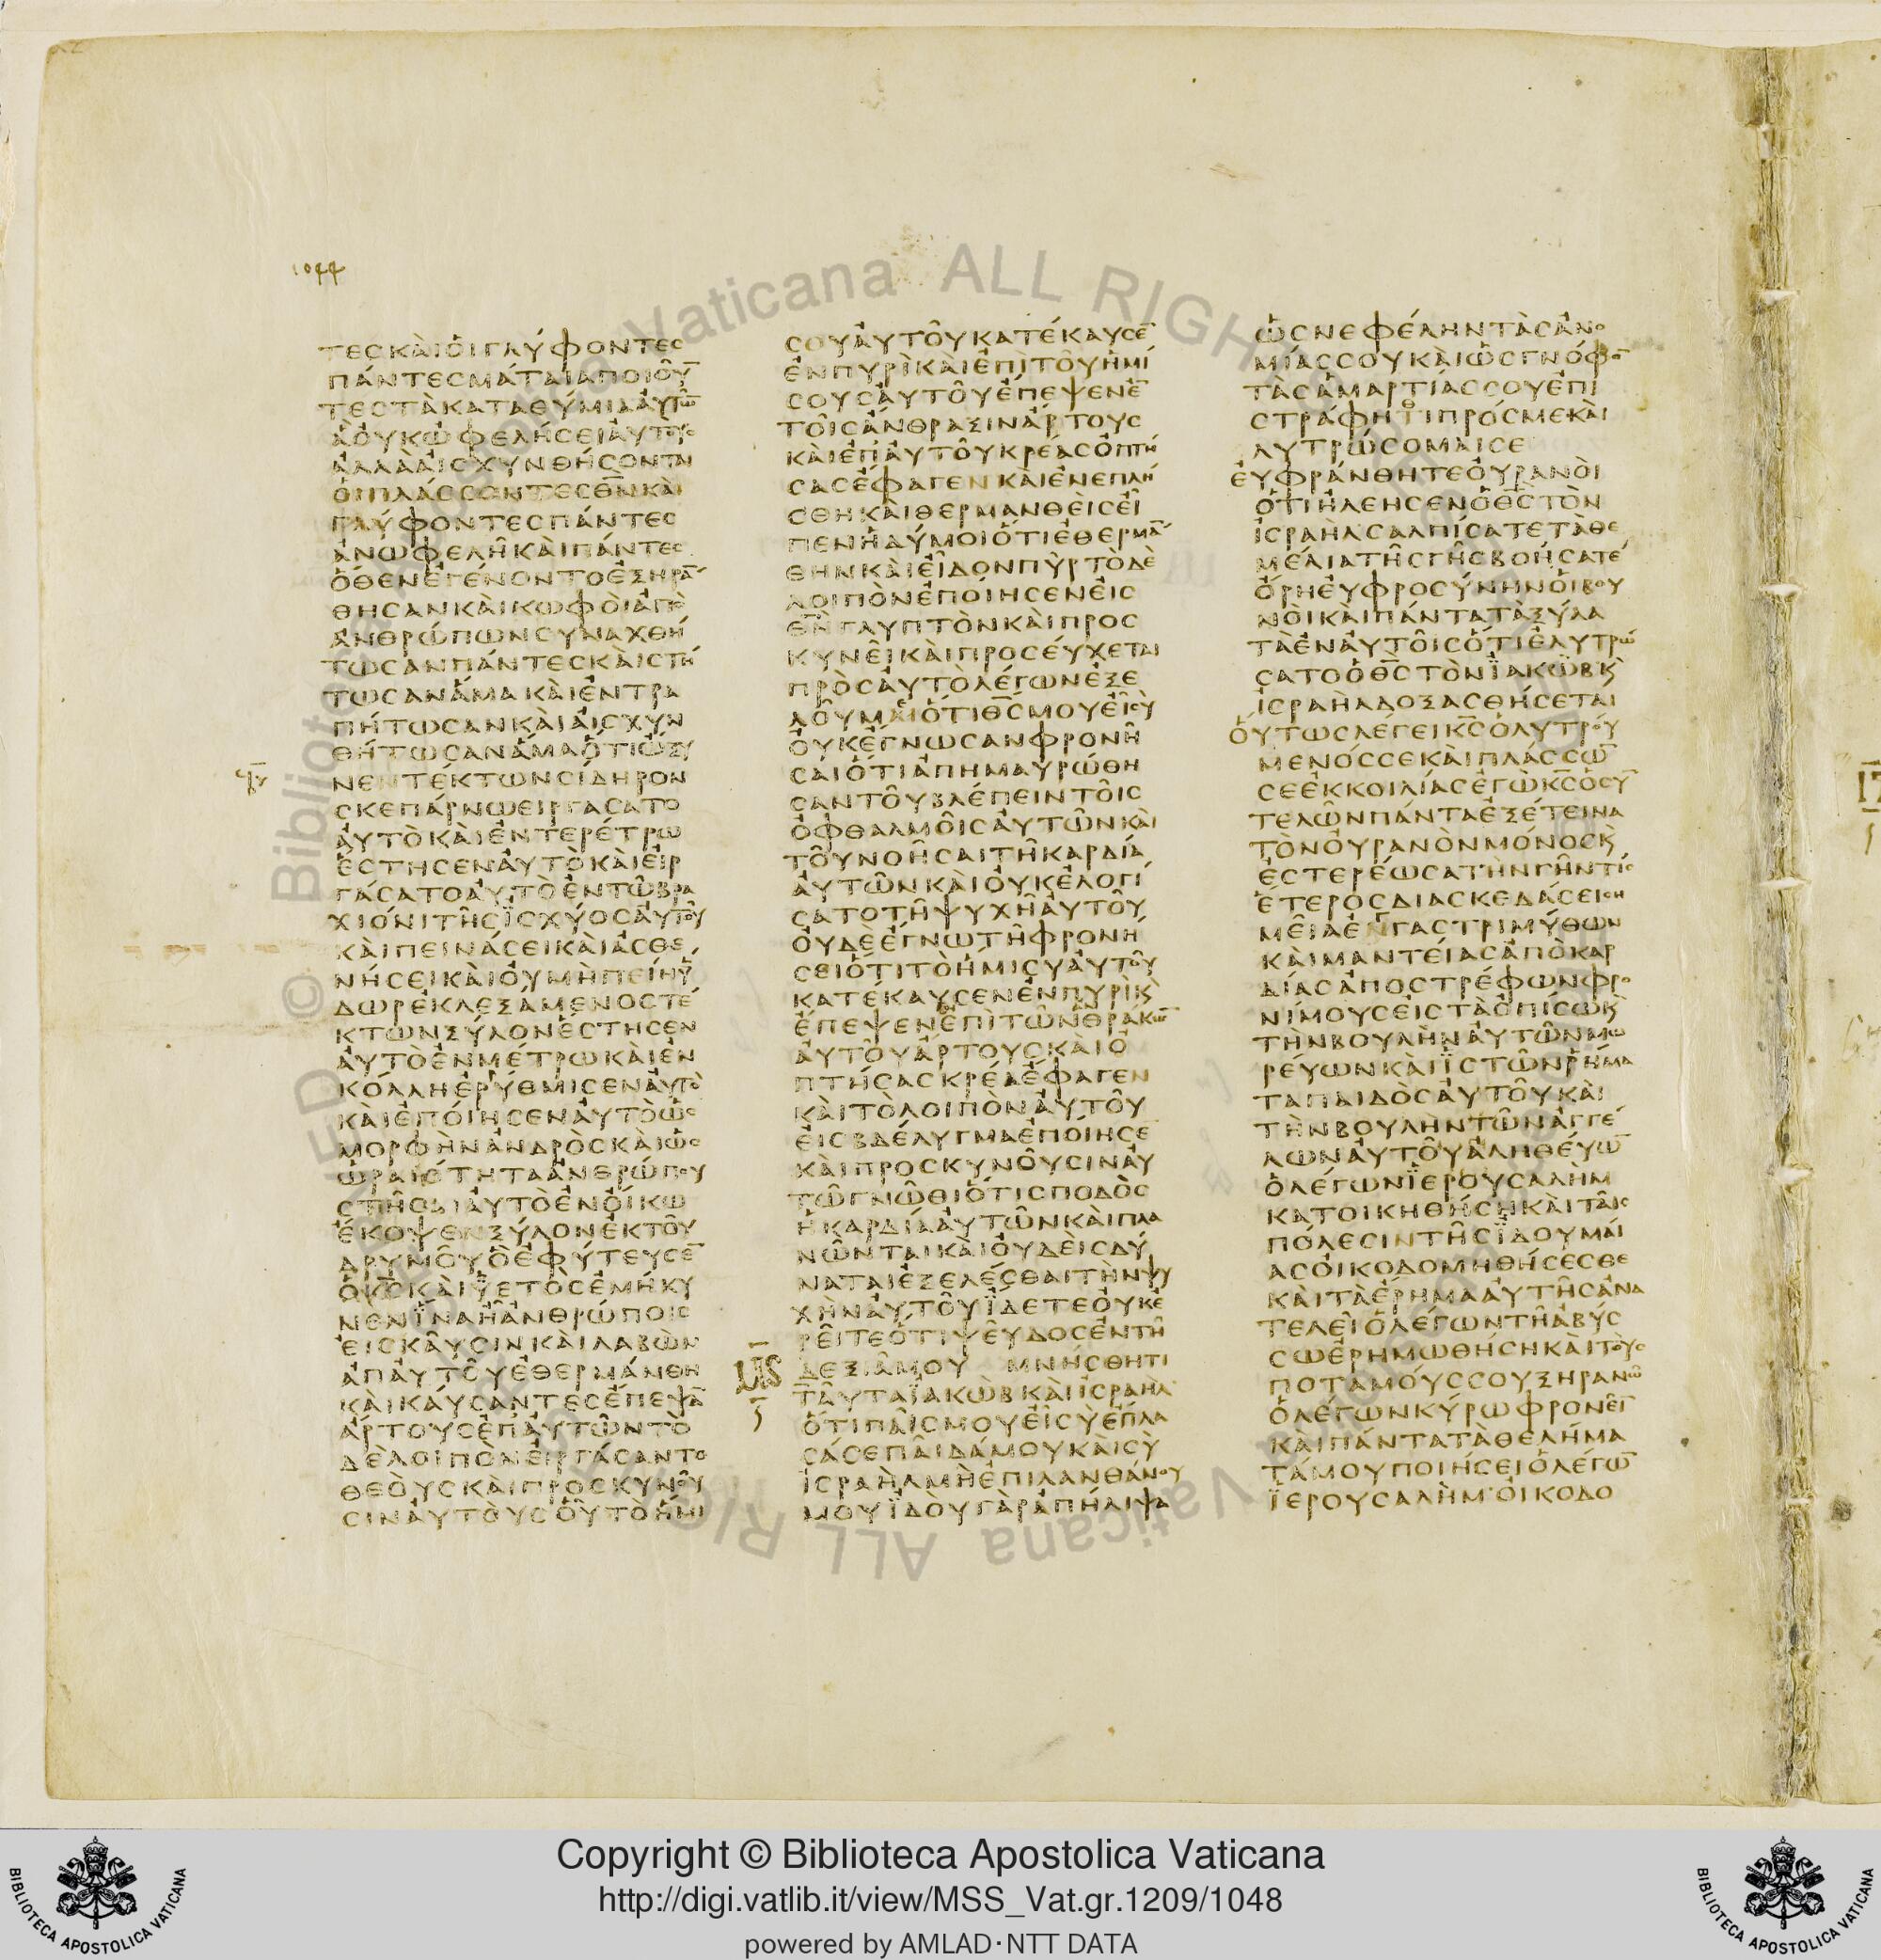 1044
ΤΕϹΚΑΙΟΙΓΛΥΦΟΝΤΕϹ
ΠΑΝΤΕϹΜΑΤΑΙΑΠΟΙΟΥ̅
ΤΕϹΤΑΚΑΤΑΘΥΜΙΑΑΥΤΩ̅
ΑΟΥΚΩΦΕΛΗϹΕΙΑΥΤΟΥϹ
ΑΛΛΑΑΙϹΧΥΝΘΗϹΟΝΤΑΙ
ΟΙΠΛΑϹϹΟΝΤΕϹΘ̅Ν̅ΚΑΙ
ΓΛΥΦΟΝΤΕϹΠΑΝΤΕϹ
ΑΝΩΦΕΛΗΚΑΙΠΑΝΤΕϹ
ΟΘΕΝΕΓΕΝΟΝΤΟΕΞΗΡΑ̅
ΘΗϹΑΝΚΑΙΚΩΦΟΙΑΠΟ
ΑΝΘΡΩΠΩΝϹΥΝΑΧΘΗ
ΤΩϹΑΝΠΑΝΤΕϹΚΑΙϹΤΗ
ΤΩϹΑΝΑΜΑΚΑΙΕΝΤΡΑ
ΠΗΤΩϹΑΝΚΑΙΑΙϹΧΥΝ
ΘΗΤΩϹΑΝΑΜΑΟΤΙΩΞΥ
ΝΕΝΤΕΚΤΩΝϹΙΔΗΡΟΝ
ϹΚΕΠΑΡΝΩΕΙΡΓΑϹΑΤΟ
ΑΥΤΟΚΑΙΕΝΤΕΡΕΤΡΩ
ΕϹΤΗϹΕΝΑΥΤΟΚΑΙΕΙΡ
ΓΑϹΑΤΟΑΥΤΟΕΝΤΩΒΡΑ
ΧΙΟΝΙΤΗϹΪϹΧΥΟϹΑΥΤΟΥ
ΚΑΙΠΕΙΝΑϹΕΙΚΑΙΑϹΘΕ
ΝΗϹΕΙΚΑΙΟΥΜΗΠΕΙΗΥ̅
ΔΩΡΕΚΛΕΞΑΜΕΝΟϹΤΕ
ΚΤΩΝΞΥΛΟΝΕϹΤΗϹΕΝ
ΑΥΤΟΕΝΜΕΤΡΩΚΑΙΕΝ
ΚΟΛΛΗΕΡΥΘΜΙϹΕΝΑΥΤΟ
ΚΑΙΕΠΟΙΗϹΕΝΑΥΤΟΩϹ
ΜΟΡΦΗΝΑΝΔΡΟϹΚΑΙΩϹ
ΩΡΑΙΟΤΗΤΑΑΝΘΡΩΠΟΥ
ϹΤΗϹΑΙΑΥΤΟΕΝΟΙΚΩ
ΕΚΟΨΕΝΞΥΛΟΝΕΚΤΟΥ
ΔΡΥΜΟΥΟΕΦΥΤΕΥϹΕ̅
ΟΚ̅Ϲ̅ΚΑΙΫΕΤΟϹΕΜΗΚΥ
ΝΕΝΪΝΑΗΑΝΘΡΩΠΟΙϹ
ΕΙϹΚΑΥϹΙΝΚΑΙΛΑΒΩΝ
ΑΠΑΥΤΟΥΕΘΕΡΜΑΝΘΗ
ΚΑΙΚΑΥϹΑΝΤΕϹΕΠΕΨΑ̅
ΑΡΤΟΥϹΕΠΑΥΤΩΝΤΟ
ΔΕΛΟΙΠΟΝΕΙΡΓΑϹΑΝΤΟ
ΘΕΟΥϹΚΑΙΠΡΟϹΚΥΝΟΥ
ϹΙΝΑΥΤΟΥϹΟΥΤΟΗΜΙ
ϹΟΥΑΥΤΟΥΚΑΤΕΚΑΥϹΕ̅
ΕΝΠΥΡΙΚΑΙΕΠΙΤΟΥΗΜΙ
ϹΟΥϹΑΥΤΟΥΕΠΕΨΕΝΕ̅
ΤΟΙϹΑΝΘΡΑΞΙΝΑΡΤΟΥϹ
ΚΑΙΕΠΑΥΤΟΥΚΡΕΑϹΟΠΤΗ
ϹΑϹΕΦΑΓΕΝΚΑΙΕΝΕΠΛΗ
ϹΘΗΚΑΙΘΕΡΜΑΝΘΕΙϹΕΙ
ΠΕΝΗΔΥΜΟΙΟΤΙΕΘΕΡΜΑ̅
ΘΗΝΚΑΙΕΙΔΟΝΠΥΡΤΟΔΕ
ΛΟΙΠΟΝΕΠΟΙΗϹΕΝΕΙϹ
Θ̅Ν̅ΓΛΥΠΤΟΝΚΑΙΠΡΟϹ
ΚΥΝΕΙΚΑΙΠΡΟϹΕΥΧΕΤΑΙ
ΠΡΟϹΑΥΤΟΛΕΓΩΝΕΞΕ
ΛΟΥΜΑΙΟΤΙΘ̅Ϲ̅ΜΟΥΕΙϹΥ
ΟΥΚΕΓΝΩϹΑΝΦΡΟΝΗ
ϹΑΙΟΤΙΑΠΗΜΑΥΡΩΘΗ
ϹΑΝΤΟΥΒΛΕΠΕΙΝΤΟΙϹ
ΟΦΘΑΛΜΟΙϹΑΥΤΩΝΚΑΙ
ΤΟΥΝΟΗϹΑΙΤΗΚΑΡΔΙΑ
ΑΥΤΩΝΚΑΙΟΥΚΕΛΟΓΙ
ϹΑΤΟΤΗΨΥΧΗΑΥΤΟΥ
ΟΥΔΕΕΓΝΩΤΗΦΡΟΝΗ
ϹΕΙΟΤΙΤΟΗΜΙϹΥΑΥΤΟΥ
ΚΑΤΕΚΑΥϹΕΝΕΝΠΥΡΙΚ
ΕΠΕΨΕΝΕΠΙΤΩΝΘΡΑΚΩ̅
ΑΥΤΟΥΑΡΤΟΥϹΚΑΙΟ
ΠΤΗϹΑϹΚΡΕΑΕΦΑΓΕΝ
ΚΑΙΤΟΛΟΙΠΟΝΑΥΤΟΥ
ΕΙϹΒΔΕΛΥΓΜΑΕΠΟΙΗϹΕ
ΚΑΙΠΡΟϹΚΥΝΟΥϹΙΝΑΥ
ΤΩΓΝΩΘΙΟΤΙϹΠΟΔΟϹ
ΗΚΑΡΔΙΑΑΥΤΩΝΚΑΙΠΛΑ
ΝΩΝΤΑΙΚΑΙΟΥΔΕΙϹΔΥ
ΝΑΤΑΙΕΞΕΛΕϹΘΑΙΤΗΝΨΥ
ΧΗΝΑΥΤΟΥΪΔΕΤΕΟΥΚΕ
ΡΕΙΤΕΟΤΙΨΕΥΔΟϹΕΝΤΗ
ΔΕΞΙΑΜΟΥ ΜΝΗϹΘΗΤΙ
ΤΑΥΤΑΪΑΚΩΒΚΑΙΙϹΡΑΗΛ
ΟΤΙΠΑΙϹΜΟΥΕΙϹΥΕΠΛΑ
ϹΑϹΕΠΑΙΔΑΜΟΥΚΑΙϹΥ
ΙϹΡΑΗΛΜΗΕΠΙΛΑΝΘΑΝΟΥ
ΜΟΥΪΔΟΥΓΑΡΑΠΗΛΙΨΑ
ΩϹΝΕΦΕΛΗΝΤΑϹΑΝΟ
ΜΙΑϹϹΟΥΚΑΙΩϹΓΝΟΦΟ̅
ΤΑϹΑΜΑΡΤΙΑϹϹΟΥΕΠΙ
ϹΤΡΑΦΗΤΙΠΡΟϹΜΕΚΑΙ
ΛΥΤΡΩϹΟΜΑΙϹΕ
ΕΥΦΡΑΝΘΗΤΕΟΥΡΑΝΟΙ
ΟΤΙΗΛΕΗϹΕΝΟΘ̅Ϲ̅ΤΟΝ
ΙϹΡΑΗΛϹΑΛΠΙϹΑΤΕΤΑΘΕ
ΜΕΛΙΑΤΗϹΓΗϹΒΟΗϹΑΤΕ
ΟΡΗΕΥΦΡΟϹΥΝΗΝΟΙΒΟΥ
ΝΟΙΚΑΙΠΑΝΤΑΤΑΞΥΛΑ
ΤΑΕΝΑΥΤΟΙϹΟΤΙΕΛΥΤΡΩ
ϹΑΤΟΟΘ̅Ϲ̅ΤΟΝΪΑΚΩΒΚ
ΙϹΡΑΗΛΔΟΞΑϹΘΗϹΕΤΑΙ
ΟΥΤΩϹΛΕΓΕΙΚ̅Ϲ̅ΟΛΥΤΡΟΥ
ΜΕΝΟϹϹΕΚΑΙΠΛΑϹϹΩ̅
ϹΕΕΚΚΟΙΛΙΑϹΕΓΩΚ̅Ϲ̅ΟϹΥ̅
ΤΕΛΩΝΠΑΝΤΑΕΞΕΤΕΙΝΑ
ΤΟΝΟΥΡΑΝΟΝΜΟΝΟϹΚ
ΕϹΤΕΡΕΩϹΑΤΗΝΓΗΝΤΙϹ
ΕΤΕΡΟϹΔΙΑϹΚΕΔΑϹΕΙϹΗ
ΜΕΙΑΕΝΓΑϹΤΡΙΜΥΘΩΝ
ΚΑΙΜΑΝΤΕΙΑϹΑΠΟΚΑΡ
ΔΙΑϹΑΠΟϹΤΡΕΦΩΝΦΡΟ
ΝΙΜΟΥϹΕΙϹΤΑΟΠΙϹΩΚ
ΤΗΝΒΟΥΛΗΝΑΥΤΩΝΜΩ
ΡΕΥΩΝΚΑΙΪϹΤΩΝΡΗΜΑ
ΤΑΠΑΙΔΟϹΑΥΤΟΥΚΑΙ
ΤΗΝΒΟΥΛΗΝΤΩΝΑΓΓΕ
ΛΩΝΑΥΤΟΥΑΛΗΘΕΥΩ̅
ΟΛΕΓΩΝΪΕΡΟΥϹΑΛΗΜ
ΚΑΤΟΙΚΗΘΗϹΗΚΑΙΤΑΙϹ
ΠΟΛΕϹΙΝΤΗϹΪΔΟΥΜΑΙ
ΑϹΟΙΚΟΔΟΜΗΘΗϹΕϹΘΕ
ΚΑΙΤΑΕΡΗΜΑΑΥΤΗϹΑΝΑ
ΤΕΛΕΙΟΛΕΓΩΝΤΗΑΒΥϹ
ϹΩΕΡΗΜΩΘΗϹΗΚΑΙΤΟΥϹ
ΠΟΤΑΜΟΥϹϹΟΥΞΗΡΑΝΩ
ΟΛΕΓΩΝΚΥΡΩΦΡΟΝΕΙ̅
ΚΑΙΠΑΝΤΑΤΑΘΕΛΗΜΑ
ΤΑΜΟΥΠΟΙΗϹΕΙΟΛΕΓΩ̅
ΪΕΡΟΥϹΑΛΗΜΟΙΚΟΔΟ
Copyright © Biblioteca Apostolica Vaticana
http://digi.vatlib.it/view/MSS_Vat.gr.1209/1048
powered by AMLAD·NTT DATA
BIBLIOTECA APOSTOLICA VATICANA
BIBLIOTECA APOSTOLICA VATICANA